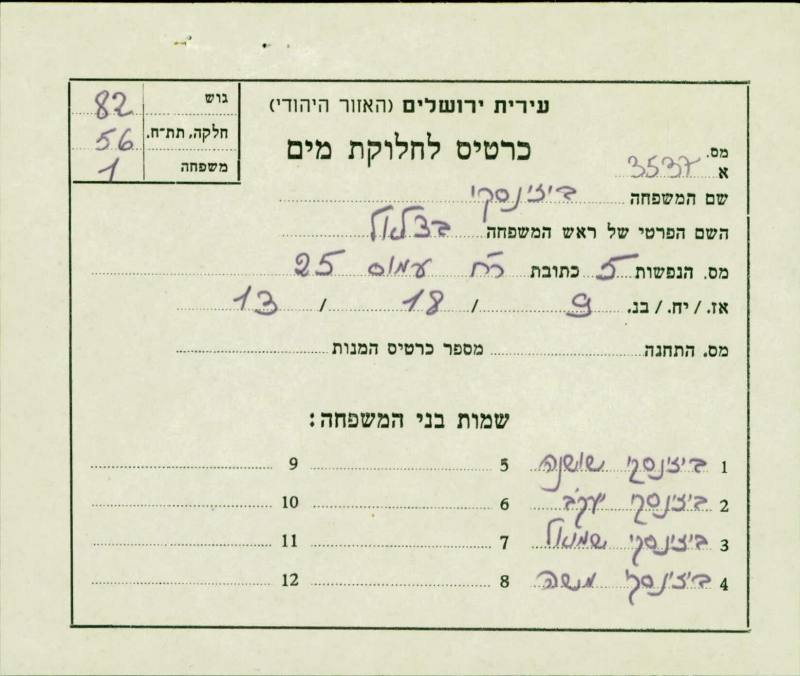 עירית ירושלים (האזור היהודי)
גוש 82
חלקה, תת־ח. 56
משפחה 1
כרטיס לחלוקת מים
מס. א 3537
שם המשפחה ביז'ינסקי
השם הפרטי של ראש המשפחה בצלאל
מס. הנפשות 5 כתובת רח' עמוס 25
אז. / יח. / בנ. 9 / 18 / 13
מס. התחנה מספר כרטיס המנות
שמות בני המשפחה:
1 ביז'ינסקי שושנה 5 9
2 ביז'ינסקי יעקב 6 10
3 ביז'ינסקי שמואל 7 11
4 ביז'ינסקי מנשה 8 12